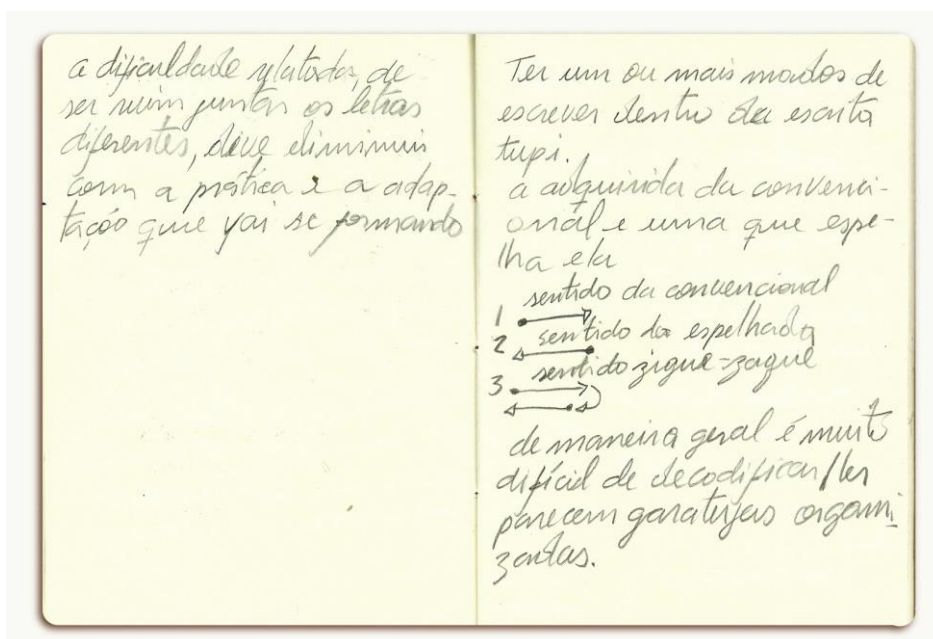 a dificuldade relatada, de
ser ruim juntar as letras
diferentes, deve diminuir
com a prática e a adap-
tação que vai se formando
Ter um ou mais modos de
escrever dentro da escrita
tupi.
a adquirida da convenci-
onal e uma que espe-
lha ela
1 sentido da convencional
2 sentido da espelhada
3 sentido zigue-zague
de maneira geral é muito
difícil de decodificar/ler
parecem garatujas organi-
zadas.